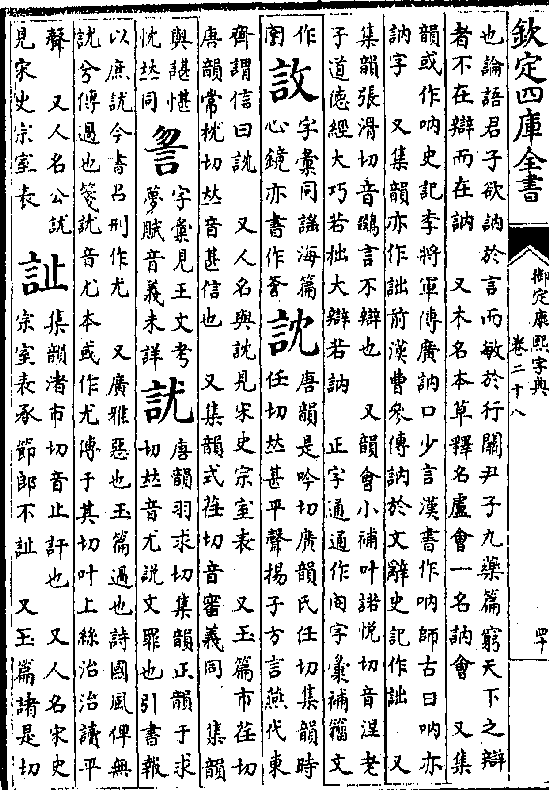 欽定四庫全書
御定康熙字典
卷二十八
四十
也論語君子欲訥於言而敏於行關尹子九藥篇窮天下之辯
者不在辯而在訥　又木名本草釋名盧會一名訥會　又集
韻或作吶史記李將軍傳廣訥口少言漢書作吶師古曰吶亦
訥字　又集韻亦作詘前漢曹參傳訥於文辭史記作詘　又
集韻張滑切音鵽言不辯也　又韻會小補叶諾悅切音涅老
子道德經大巧若拙大辯若訥　正字通通作㕯字彙補籀文
作
圁
䚱
字彙同謠海篇
心鏡亦書作䚻
訦
唐韻是吟切廣韻氏任切集韻時
任切𠀤甚平聲揚子方言燕代東
齊謂信曰訦　又人名與訦見宋史宗室表　又玉篇市荏切
唐韻常枕切𠀤音甚信也　又集韻式荏切音審義同　集韻
與諶愖
忱𠀤同
字彙見王文考
夢賦音義未詳
訧
唐韻羽求切集韻正韻于求
切𠀤音尤說文罪也引書報
以庶訧今書呂刑作尤　又廣雅惡也玉篇過也詩國風俾無
訧兮傳過也箋訧音尤本或作尤傳于其切叶上絲治治讀平
聲　又人名公訧
見宋史宗室表
訨
集韻渚市切音止訐也　又人名宋史
宗室表承節郎不訨　又玉篇諸是切